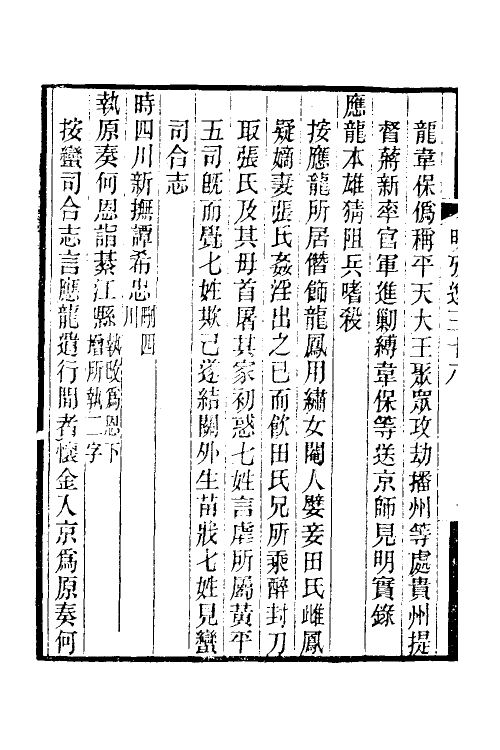 龍韋保僞稱平天大王聚眾攻劫播州等處貴州提
督蔣新率官軍進勦縛韋保等送京師見明實錄
應龍本雄猜阻兵嗜殺
按應龍所居僭飾龍鳳用繡女閹人嬖妾田氏雌鳳
疑嫡妻張氏姦淫出之已而飲田氏兄所乘醉封刀
取張氏及其母首屠其家初惑七姓言虐所屬黃平
五司既而覺七姓欺己遂結關外生苗戕七姓見蠻
司合志
時四川新撫譚希忠刪四川
執原奏何恩詣綦江縣執改爲恩下增所執二字
按蠻司合志言應龍遣行間者懷金入京爲原奏何